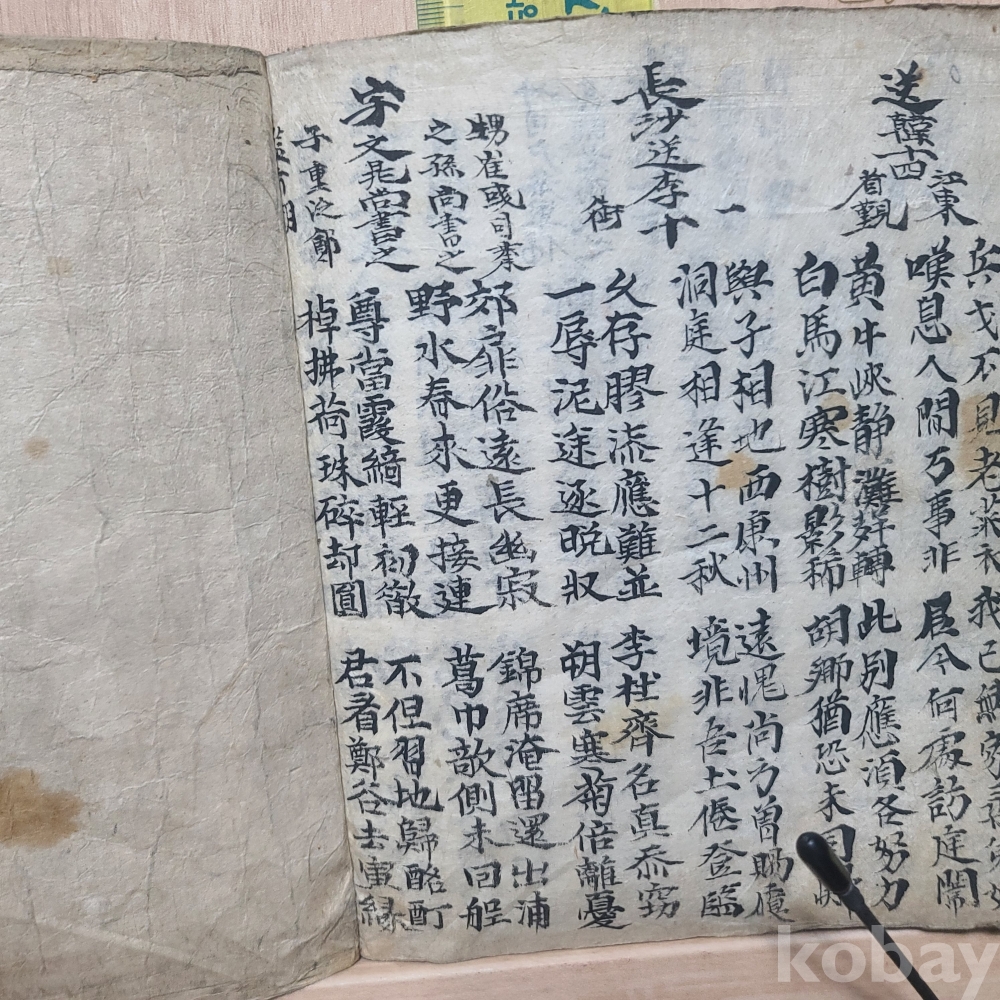 送韓十四
江東
省覲
兵戈不見老萊衣
我已無家尋弟
嘆息人間万事非
居今何處訪庭闈
黃牛峽静灘聲轉
此別應須各努力
白馬江寒樹影稀
鄉猶恐未同
長沙送李十一
銜
與子相地西康州
遠愧尚方曾賜履
洞庭相逢十二秋
境非吾土倦登臨
久存膠漆應難並
李杜齊名真忝竊
一辱泥途逐晩収
朔雲寒菊倍離憂
宇文晁尚書之
甥崔彧司業
之孫尚書之
子重泛鄭
監前湖
郊扉俗遠長幽寂
錦席淹留還出浦
野水春來更接連
葛巾欹側未回船
尊當霞綺輕初散
不但習地歸酩酊
棹拂荷珠碎却圓
君看鄭谷去夤緣
kobay